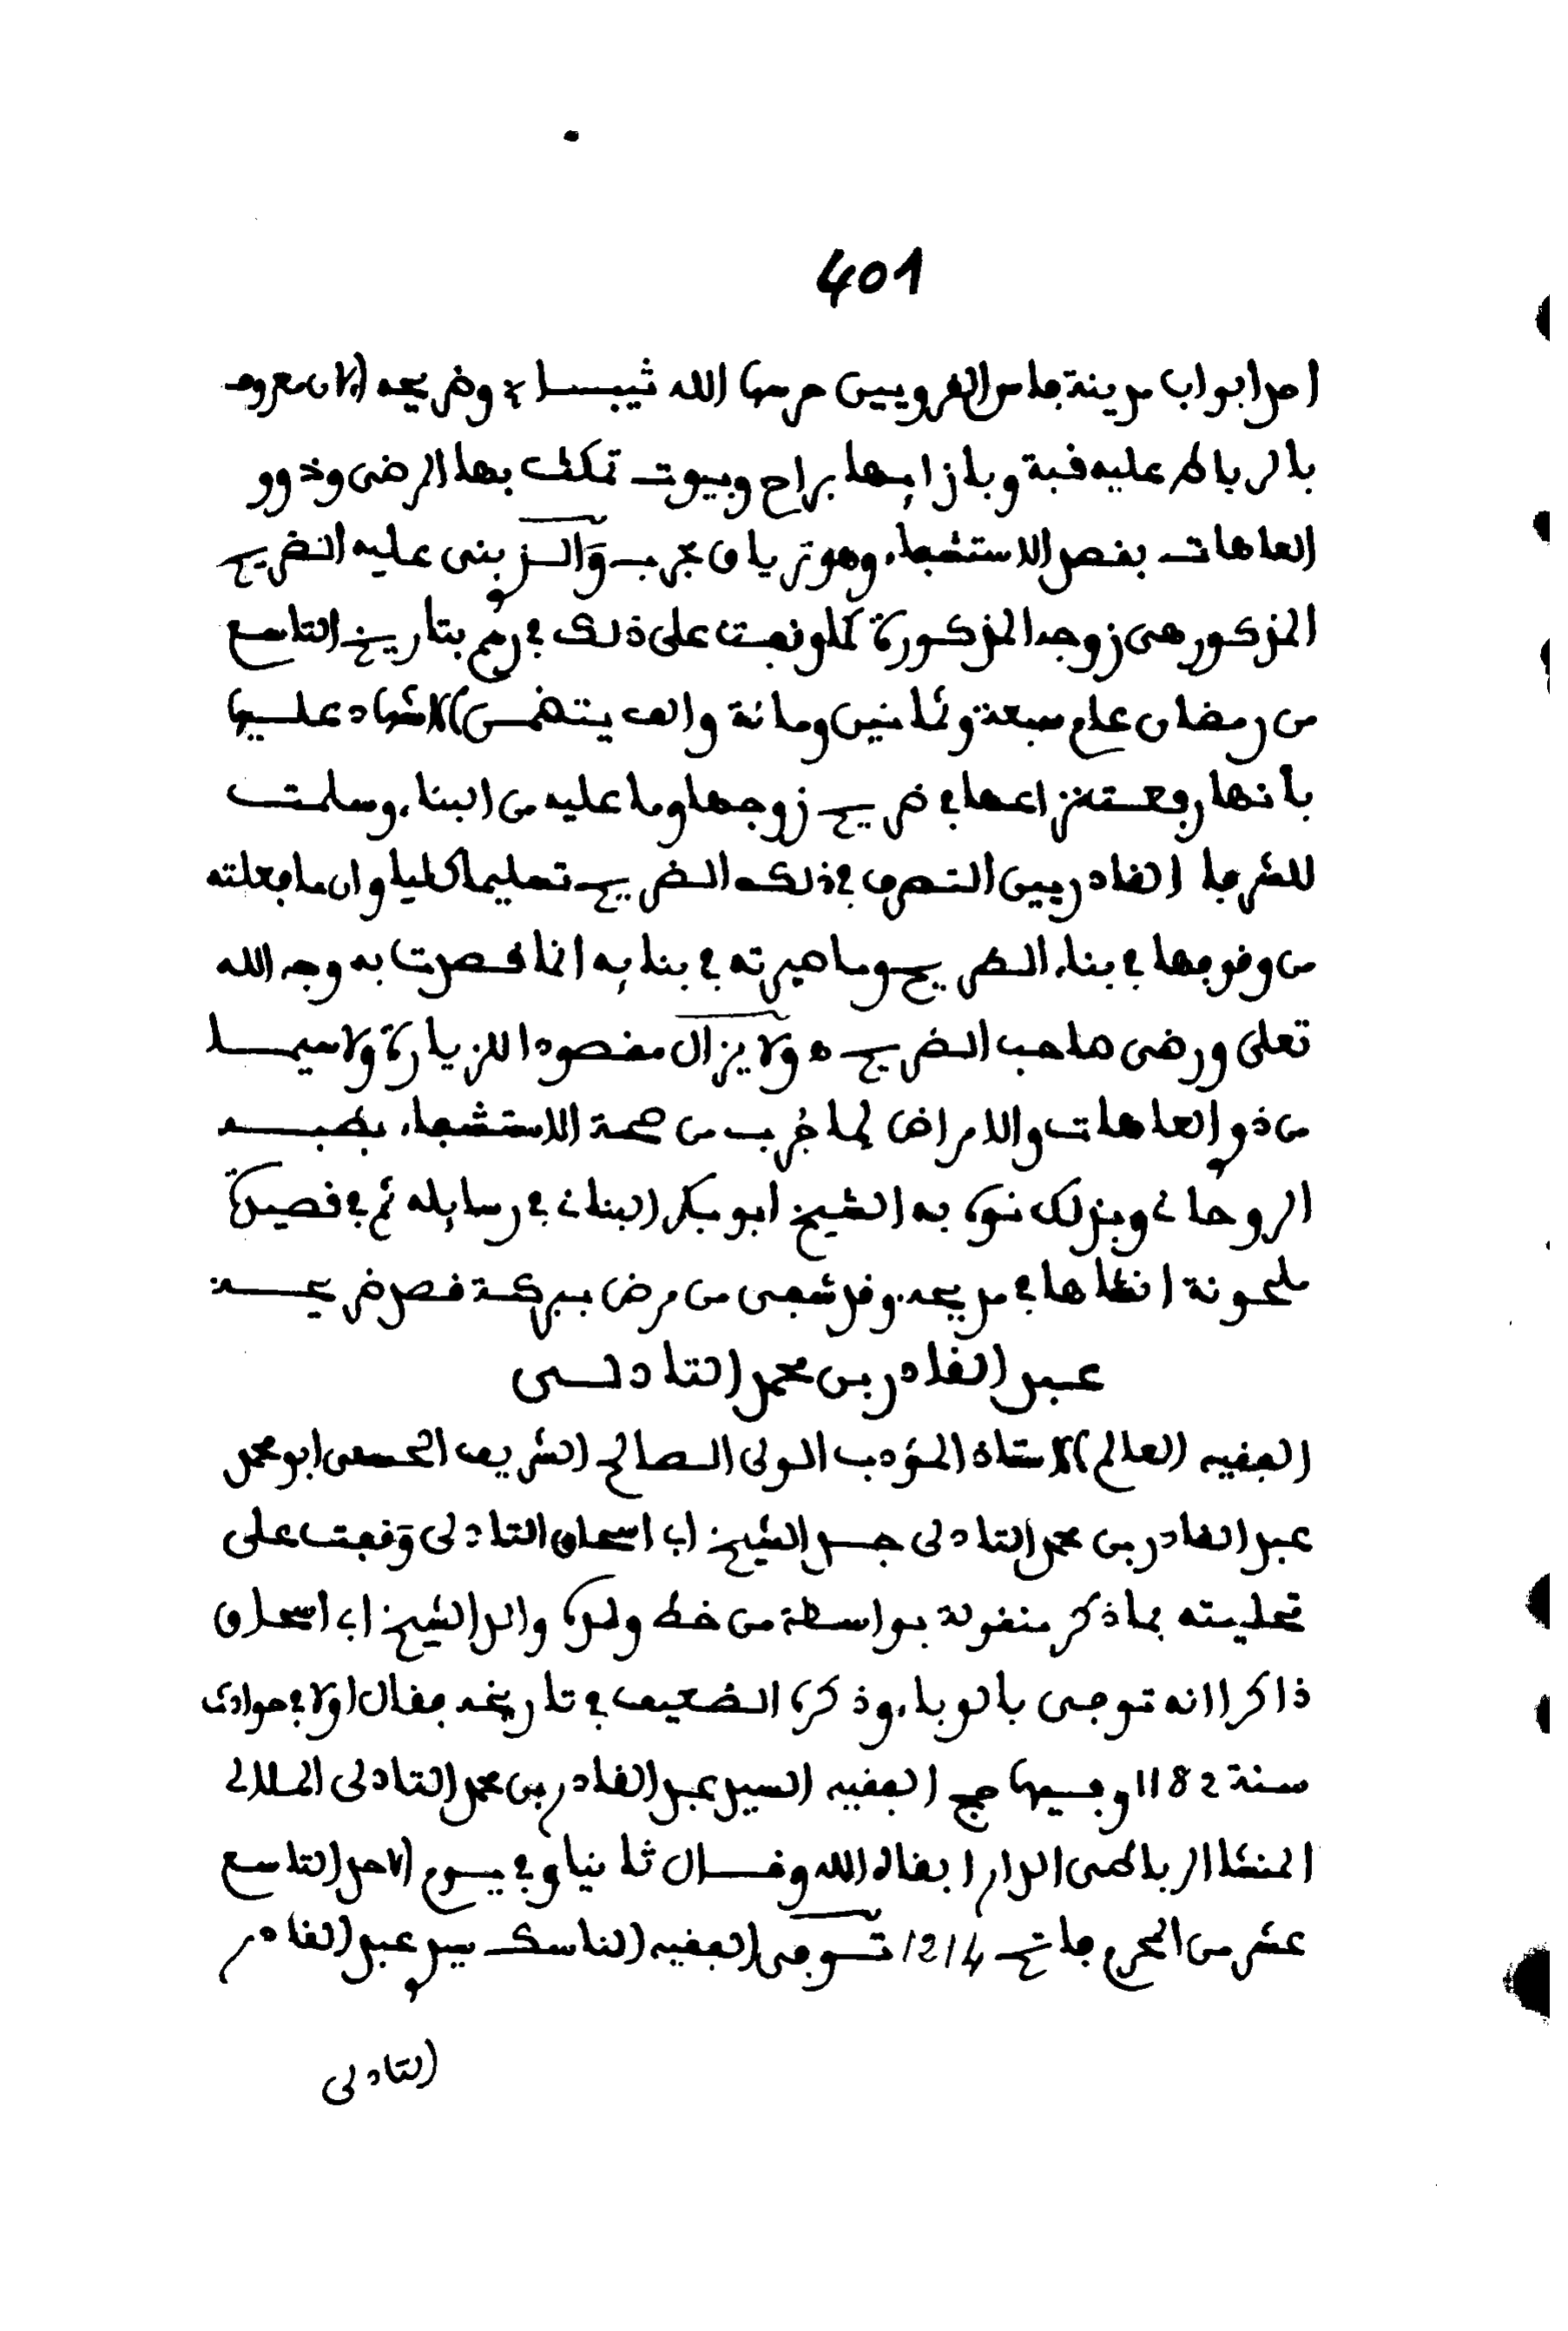 401
احد ابواب مدينة فاس القرويين حرسها الله ثيبا ؛ وضريحه الان معروف
بالرباط عليه قبة وبازايها براح وبيوت تمكث بها المرضى وذوو
العاهات بقصد الاستشفاء وهو ترياق مجرب والذي بنى عليه الضريح
المذكور هى زوجه المذكورة كما وقفت على ذلك في رسم بتاريخ التاسع
من رمضان عام سبعة وثمانين ومائة والف يتضمن الاشهاد عليها
بأنها رفعت نزاعها في ضريح زوجها وما عليه من البناء وسلمت
للشرفاء القادريين التصرف في ذلك الضريح تسليما كليا وان ما فعلته
من وقوفها في بناء الضريح وما صيرته في بنايه انما قصدت به وجه الله
تعلى ورضى صاحب الضريح ه ولا يزال مقصودا للزيارة ولا سيما
من ذوي العاهات والامراض لما جُرب من صحة الاستشفاء بطبه
الروحاني وبذلك نوه به الشيخ ابو بكر البناني في رسايله ثم في قصيدة
ملحونة انشاها في مديحه وقد شفى من مرض ببركة قصد ضريحه
عبد القادر بن محمد التادلى
الفقيه العالم الاستاذ المؤدب الولى الصالح الشريف الحسنى ابو محمد
عبد القادر بن محمد التادلى جد الشيخ ابي اسحاق التادلى وقفت على
تحليته بما ذكر منقولة بواسطة من خط ولده والد الشيخ ابي اسحاق
ذاكرا انه توفى بالوباء وذكره الضعيف في تاريخه فقال اولا في حوادث
سنة 1182 وفيها حج الفقيه السيد عبد القادر بن محمد التادلى الملالى
المنشا الرباطى الدار ابقاه الله وقال ثانيا وفي يوم الاحد التاسع
عشر من المحرم فاتح 1214 توفى الفقيه الناسك سيدي عبد القادر
التادلى